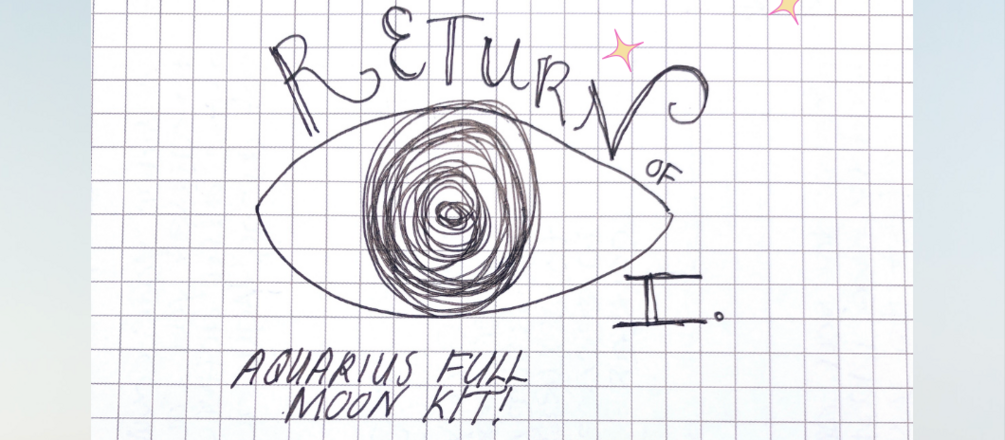 RETURN
OF
I.
AQUARIUS FULL
MOON KIT!